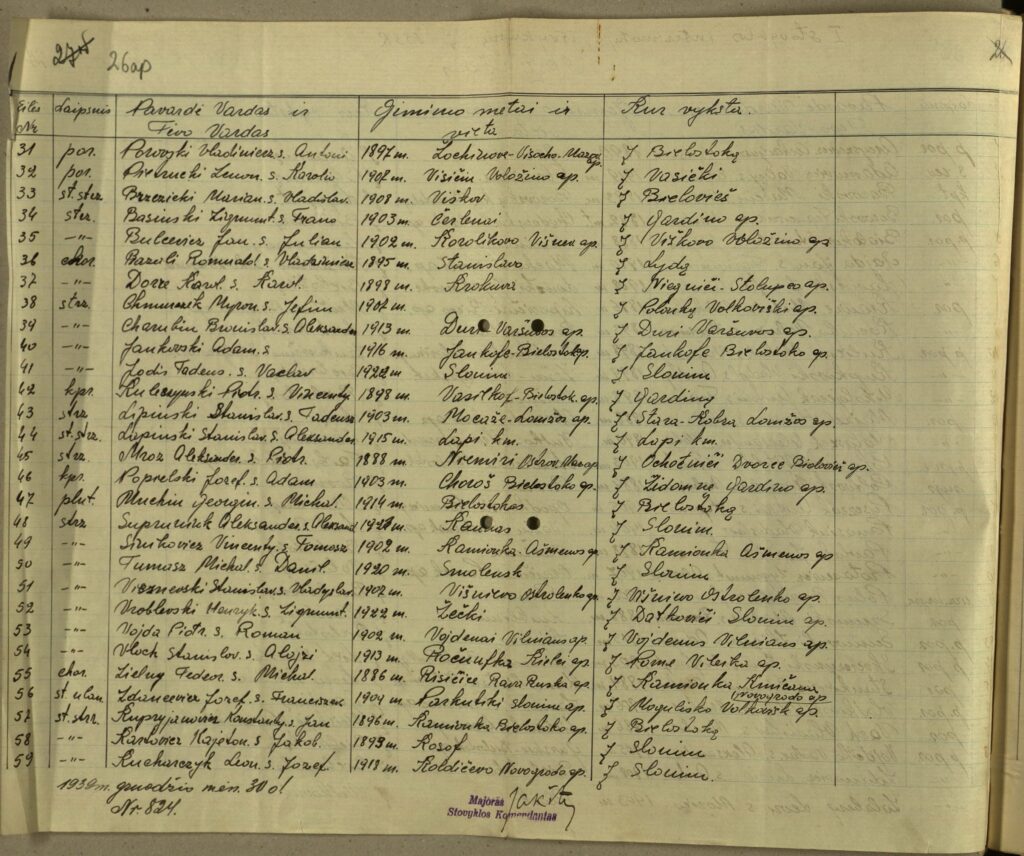 26ap
Eilės Nr. Laipsnis Pavardė Vardas ir Tėvo Vardas Gimimo metai ir vieta Kur vyksta.
31 por. Vladimierz s. Antoni 1897 m. Į Bielostoką
32 por. Pietrucki Zenon s. Karolio 1907 m. Visičin Voložino ap. Į Vasički
33 st. strz. Brzezicki Marian s. Vladislav. 1908 m. Viškov Į Bielovież
34 strz. Basinski Zigmunt s. Frano 1903 m. Čerlenai Į Gardino ap.
35 -"- Bulcevicz Jan. s. Julian 1902 m. Korolikovo Višnev ap. Į Viškovo Voložino ap
36 chor. Bazali Romuald s. 1895 m. Stanislavo Į Lydą
37 -"- Dorze Karol. s. Karol. 1898 m. Krokuva Į Stolupco ap.
38 strz. Myron. s. Jefim 1907 m. Į Polonką Volkoviški ap.
39 -"- Charubin Bronislav. s. Aleksander 1913 m. Duri Varšuvos ap. Į Duri Varšuvos ap.
40 -"- Jankovski Adam. s 1916 m. Jankofe-Bielostok ap. Į Jankofe Bielostoko ap.
41 -"- Jodis Tadeus. s. Vaclav 1922 m. Slonim Į Slonim
42 kpr. Kulczynski Piotr. s. Vincenty 1898 m. Vasilkof-Bielostok. ap. Į Gardiną
43 strz. Lipinski Stanislav. s. Tadeusz 1903 m. Mocaže-Lomžos ap. Į Stara-Kobra Lomžos ap.
44 st. strz. Lapinski Stanislav. s. Aleksander 1915 m. Lapi km. Į Lapi km.
45 strz. Mroz Aleksander. s. Piotr. 1888 m. Ostrov. Į Dvorec ap.
46 kpr. Poprelski Jozef. s. Adam 1903 m. Choroš Bielostoko ap. Į Židomne Gardino ap.
47 plut. Muchin Georgin. s. Michal. 1914 m. Bielostokas Į Bielostoką
48 strz. Aleksander. s. Aleksand. Kaunas Į Slonim.
49 -"- Sinikovicz Vincenty. s. Tomasz 1902 m. Kamionka-Ašmenos ap. Į Kamionka Ašmenos ap
50 -"- Tumasz Michal. s. Danil. 1920 m. Smolensk Į Slonim
51 -"- Viszniewski Stanislav. s. Vladyslav. 1907 m. Višnievo Ostrolenko ap. Į Višnievo Ostrolenko ap.
52 -"- Vroblevski Henryk. s. Zigmunt. 1922 m. Lečki Į Datkoviči Slonim ap.
53 -"- Vojda Piotr. s. Roman 1902 m. Vojdenai Vilniaus ap. Į Vojdenus Vilniaus ap.
54 -"- Vlock Stanislov. s. Alojzi 1913 m. Kielci ap. Į Vileika ap.
55 chor. Zielng Fedeor. s. Michal. 1886 m. Risičice Rava Ruska ap. Į Kamionka
56 st. ulan. Zdancevicz Jozef. s. Franciszek 1904 m. Parkutiški Slonim ap. (Novogrodo ap Į Mogulisko Volkovisk ap.
57 st. strz. Kupryjanovicz Konstanty. s. Jan 1896 m. Kamionka Bielostoko ap. Į Bielostoką
58 -"- Karlovicz Kajeton. s Jakob. 1893 m. Kosof Į Slonim
59 -"- Kucharczyk Leon. s. Jozef. 1913 m. Koldičevo Novogrodo ap. Į Slonim.
1939 m. gruodžio mėn. 30 d.
Nr. 824.
Majoras
Stovyklos Komendantas